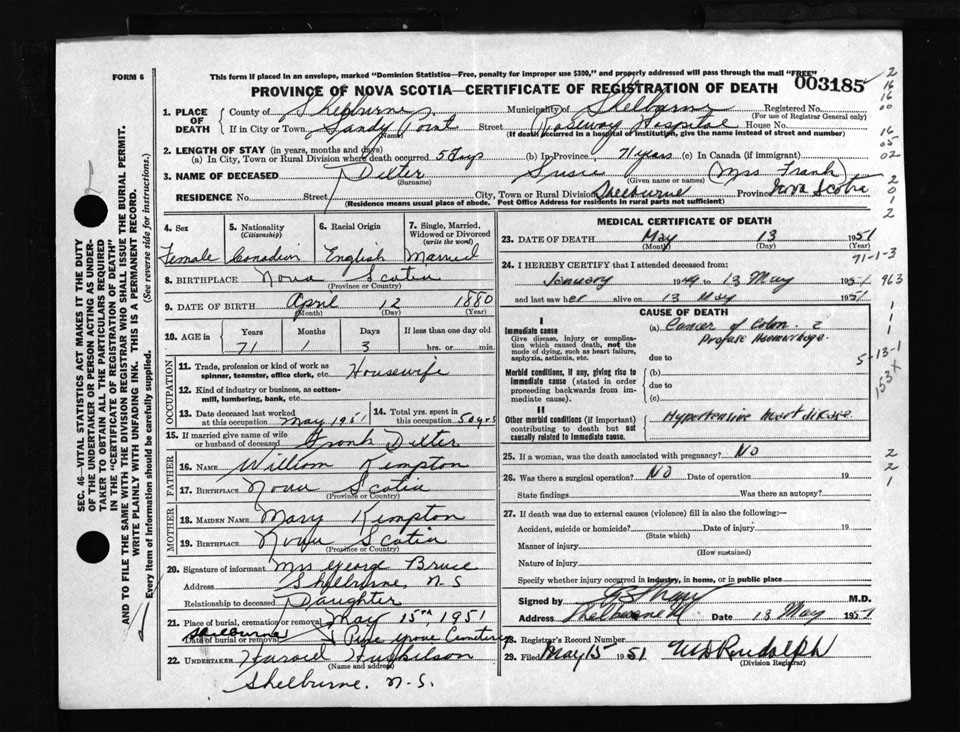 FORM 6
This form if placed in an envelope, marked "Dominion Statistics—Free, penalty for improper use $300," and properly addressed will pass through the mail "FREE"
PROVINCE OF NOVA SCOTIA—CERTIFICATE OF REGISTRATION OF DEATH 003185
1. PLACE OF DEATH
County of Shelburne Municipality of Shelburne Registered No.
(For use of Registrar General only)
If in City or Town Sandy Point Street Roseway Hospital House No.
(Name) (If death occurred in a hospital or institution, give the name instead of street and number)
2. LENGTH OF STAY (in years, months and days)
(a) In City, Town or Rural Division where death occurred 5 days (b) In Province 71 years (c) In Canada (if immigrant)
3. NAME OF DECEASED Dexter Susie (Mrs Frank)
(Surname) (Given name or names)
RESIDENCE No. Street City, Town or Rural Division Shelburne Province Nova Scotia
(Residence means usual place of abode. Post Office Address for residents in rural parts not sufficient)
4. Sex 5. Nationality (Citizenship) 6. Racial Origin 7. Single, Married, Widowed or Divorced (write the word)
Female Canadian English Married
8. BIRTHPLACE Nova Scotia
(Province or Country)
9. DATE OF BIRTH April 12 1880
(Month) (Day) (Year)
10. AGE in Years Months Days If less than one day old
71 3 hrs. or min.
OCCUPATION
11. Trade, profession or kind of work as spinner, teamster, office clerk, etc. Housewife
12. Kind of industry or business, as cotton-mill, lumbering, bank, etc.
13. Date deceased last worked at this occupation May 1951 14. Total yrs. spent in this occupation 50 yrs
15. If married give name of wife or husband of deceased Frank Dexter
FATHER
16. NAME William Kempton
17. BIRTHPLACE Nova Scotia
(Province or Country)
MOTHER
18. MAIDEN NAME Mary Kempton
19. BIRTHPLACE Nova Scotia
(Province or Country)
20. Signature of informant Mrs George Bruce
Address Shelburne, N S
Relationship to deceased Daughter
21. Place of burial, cremation or removal May 15th 1951
Date of burial or removal Shelburne Pine Grove Cemetery
22. UNDERTAKER Harold Huskilson
(Name and address)
Shelburne. N. S.
MEDICAL CERTIFICATE OF DEATH
23. DATE OF DEATH May 13 1951
(Month) (Day) (Year)
71-1-3
24. I HEREBY CERTIFY that I attended deceased from:
January 1949 to 13 May 1951
and last saw her alive on 13 May 1951
963
CAUSE OF DEATH
I
Immediate cause
Give disease, injury or complication which caused death, not the mode of dying, such as heart failure, asphyxia, asthenia, etc.
(a) Cancer of Colon
Profuse Haemorrhage.
due to
5-13-1
153X
Morbid conditions, if any, giving rise to immediate cause (stated in order proceeding backwards from immediate cause).
(b)
due to
(c)
II
Other morbid conditions (if important) contributing to death but not causally related to immediate cause.
Hypertensive heart disease.
25. If a woman, was the death associated with pregnancy? No
26. Was there a surgical operation? No Date of operation 19
State findings Was there an autopsy?
27. If death was due to external causes (violence) fill in also the following:—
Accident, suicide or homicide? Date of injury 19
(State which)
Manner of injury
(How sustained)
Nature of injury
Specify whether injury occurred in industry, in home, or in public place
Signed by M.D.
Address Shelburne Date 13 May 1951
28. Registrar's Record Number
29. Filed May 15 1951
(Division Registrar)
SEC. 46—VITAL STATISTICS ACT MAKES IT THE DUTY
OF THE UNDERTAKER OR PERSON ACTING AS UNDER-
TAKER TO OBTAIN ALL THE PARTICULARS REQUIRED
IN THE "CERTIFICATE OF REGISTRATION OF DEATH"
AND TO FILE THE SAME WITH THE DIVISION REGISTRAR WHO SHALL ISSUE THE BURIAL PERMIT.
WRITE PLAINLY WITH UNFADING INK. THIS IS A PERMANENT RECORD.
Every item of information should be carefully supplied. (See reverse side for instructions.)
2
16
16
00
16
05
02
2
0
1
2
1
1
1
2
2
1